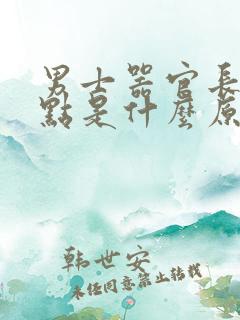 男士器官長
點是什麼原
韩世安
未经同意禁止转载